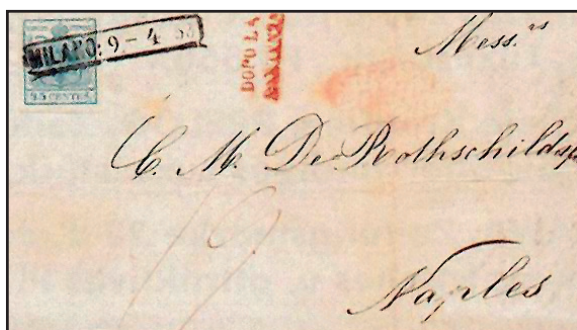 MILANO: 9-4
DOPO LA
Mess.rs
C. M. De Rothschild
Naples